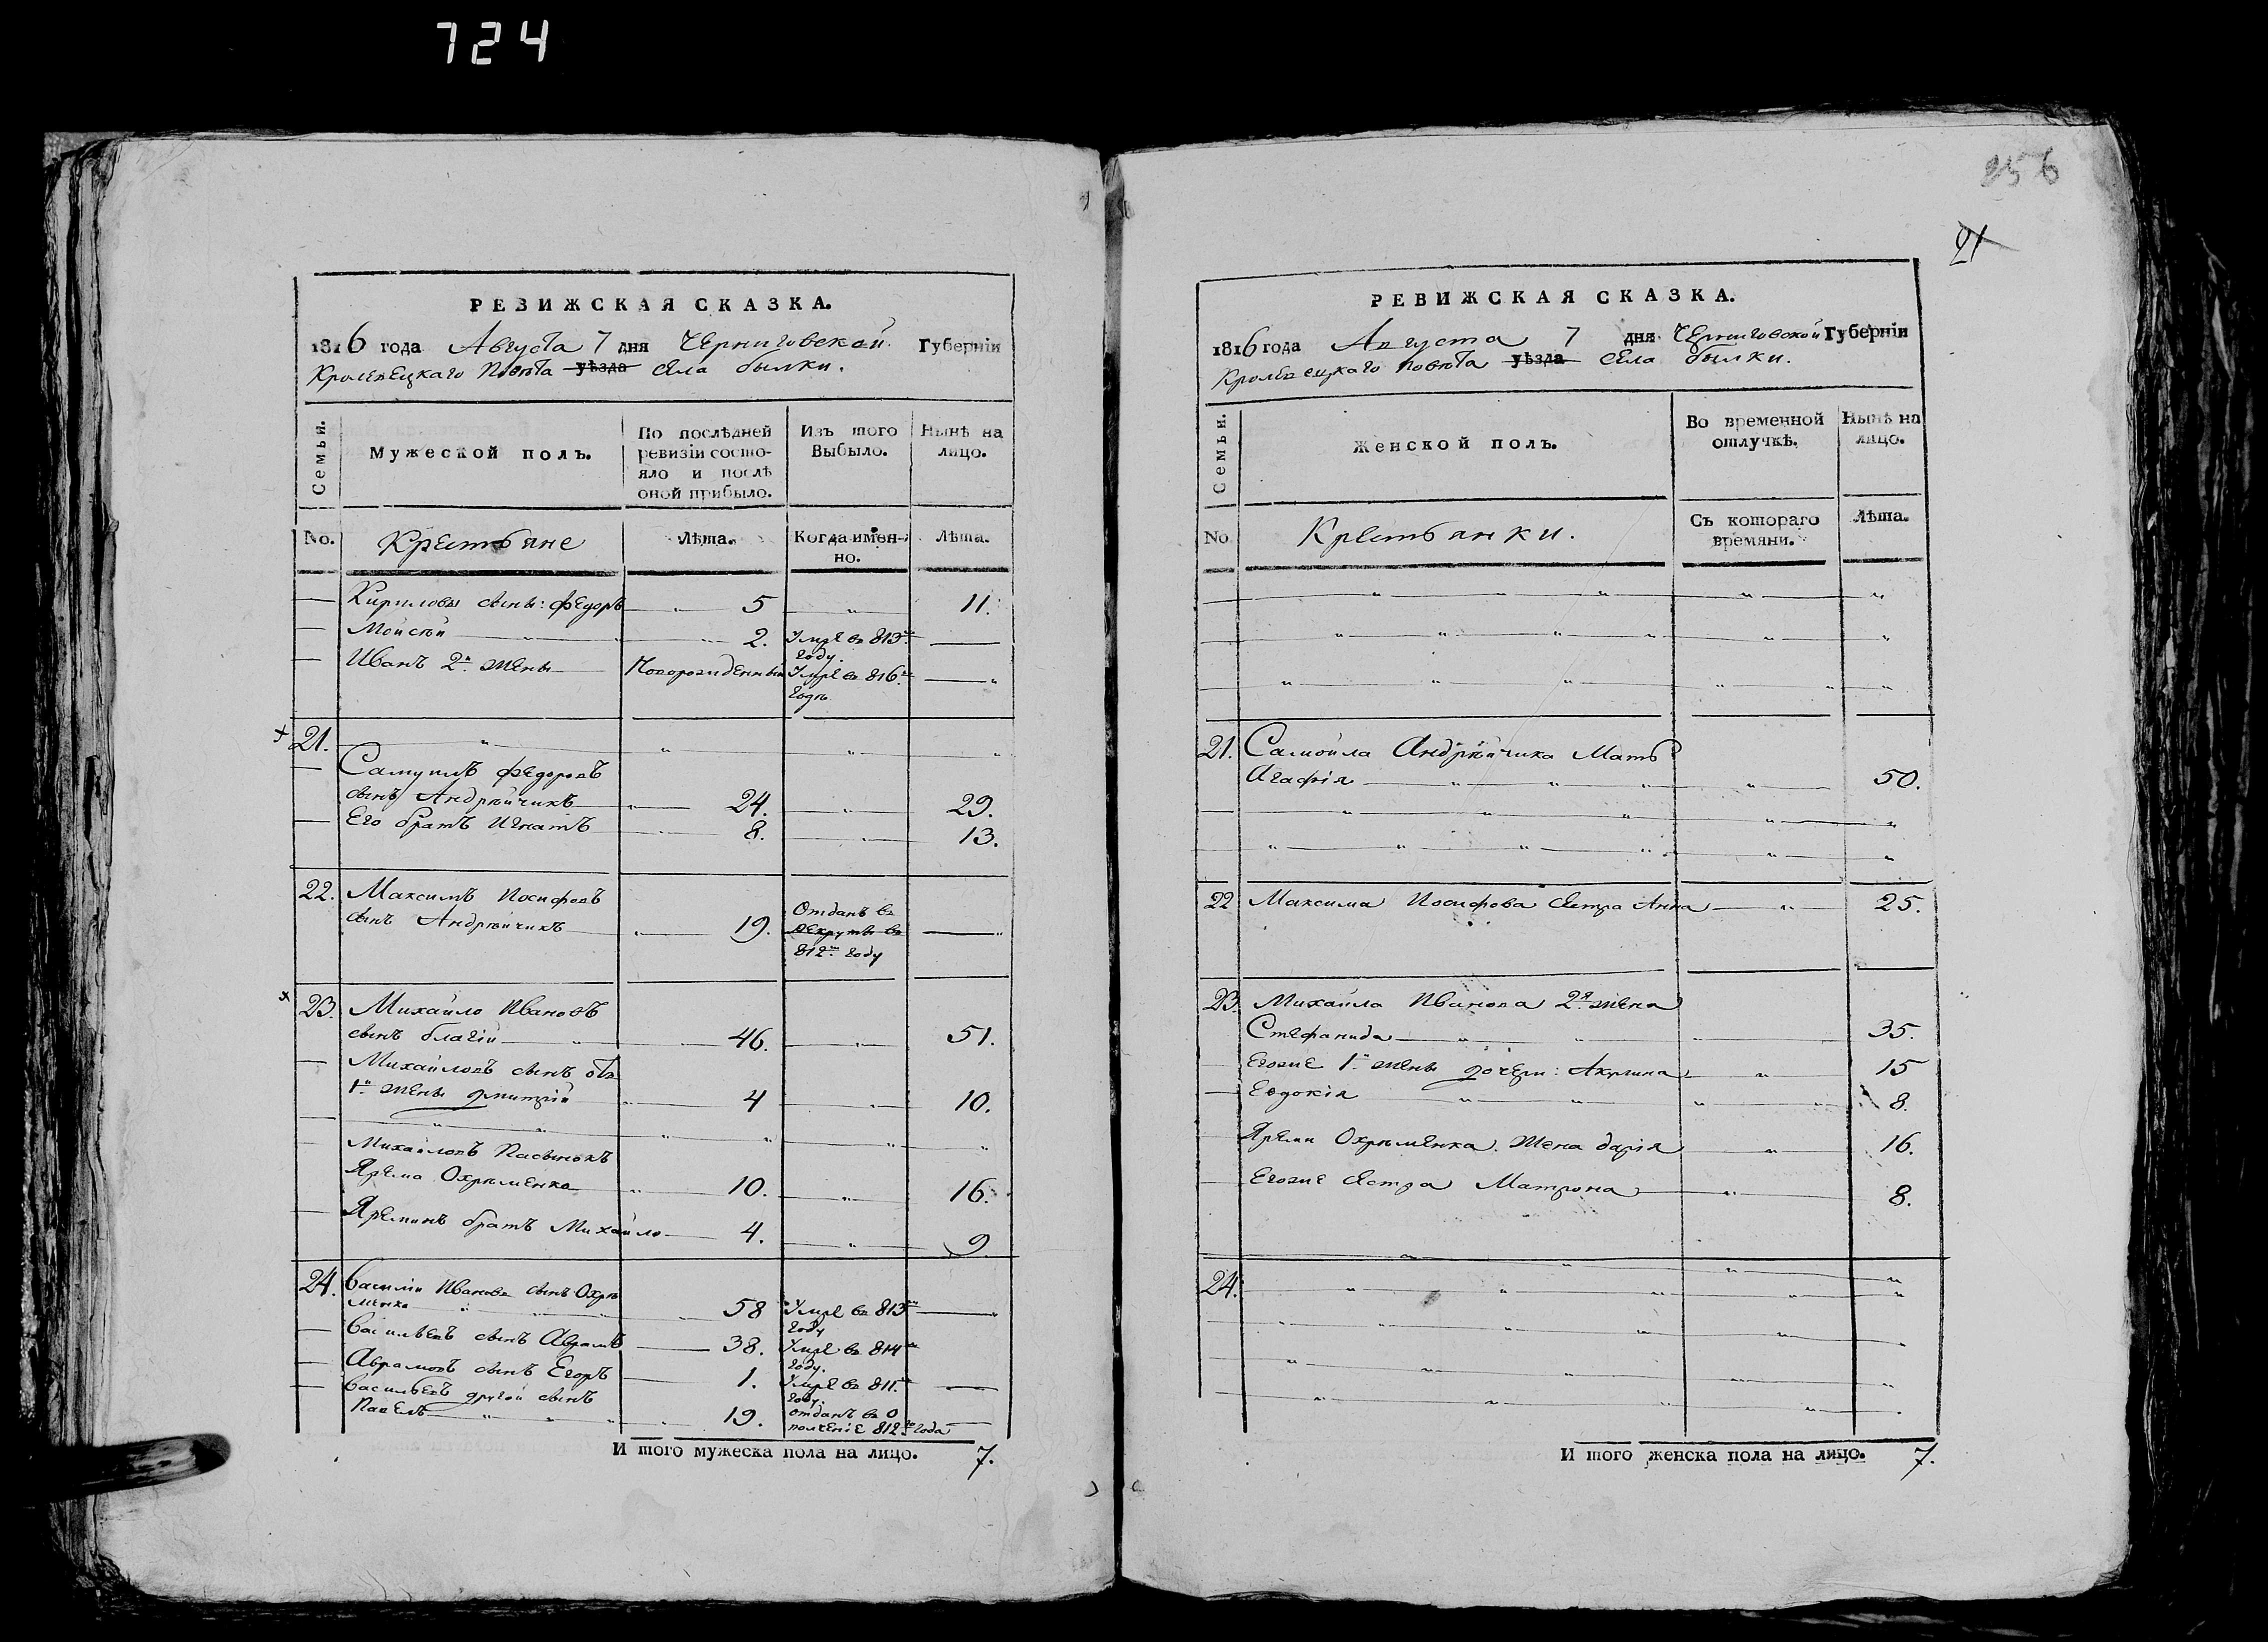 724
256
21
РЕВИЖСКАЯ СКАЗКА.
1816 года Августа 7 дня Черниговской Губерніи
Кролевецкаго Повѣта уѣзда села билки.
Семьи.
Мужеской полъ.
По послѣдней
ревизіи состо-
яло и послѣ
оной прибыло.
Изъ того
Выбыло.
Нынѣ на
лицо.
No.
Крестьяне
Лѣта.
Когда имен-
но.
Лѣта.
Кириловы сыны: Федоръ 5 11.
Мойсѣй 2. Умре въ 813м
году.
Иванъ 2й жены Новорожденный Умре въ 816м
годѣ
21.
Самуилъ Федоровъ
сынъ Андрѣйчикъ 24. 29.
Его братъ Игнатъ 8. 13.
22. Максимъ Иосифовъ
сынъ Андрѣйчикъ 19. Отданъ въ
рекруты въ
812м году
23. Михайло Ивановъ
сынъ благій 46. 51.
Михайловъ сынъ отъ
1й жены Дмитрій 4 10.
Михайловъ Пасынокъ
Ярема Охрѣменко 10. 16.
Яреминъ братъ Михайло 4. 9
24. Василій Ивановъ сынъ Охрѣ
менко 58 Умре въ 813м
году
Васильевъ сынъ Аврамъ 38. Умре въ 814м
году.
Аврамовъ сынъ Егоръ 1. Умре въ 811м
году.
Васильевъ другой сынъ
Павелъ 19. отданъ въ О
полченіе 812го года
И того мужеска пола на лицо. 7.
РЕВИЖСКАЯ СКАЗКА.
1816 года Августа 7 дня Черниговской Губерніи
Кролевецкаго повѣта уѣзда села билки.
Семьи.
Женской полъ.
Во временной
отлучкѣ.
Нынѣ на
лицо.
No
Крестьянки.
Съ котораго
времяни.
Лѣта.
21. Самойла Андрѣйчика Мать
Агафія 50.
22 Максима Иосифова сестра Анна 25.
23. Михайла Иванова 2я жена
Стефанида 35.
Егоже 1й жены дочери: Акулина 15
Евдокія 8.
Яремы Охрѣменка жена дарія 16.
Егоже сестра Матрона 8.
24.
И того женска пола на лицо. 7.